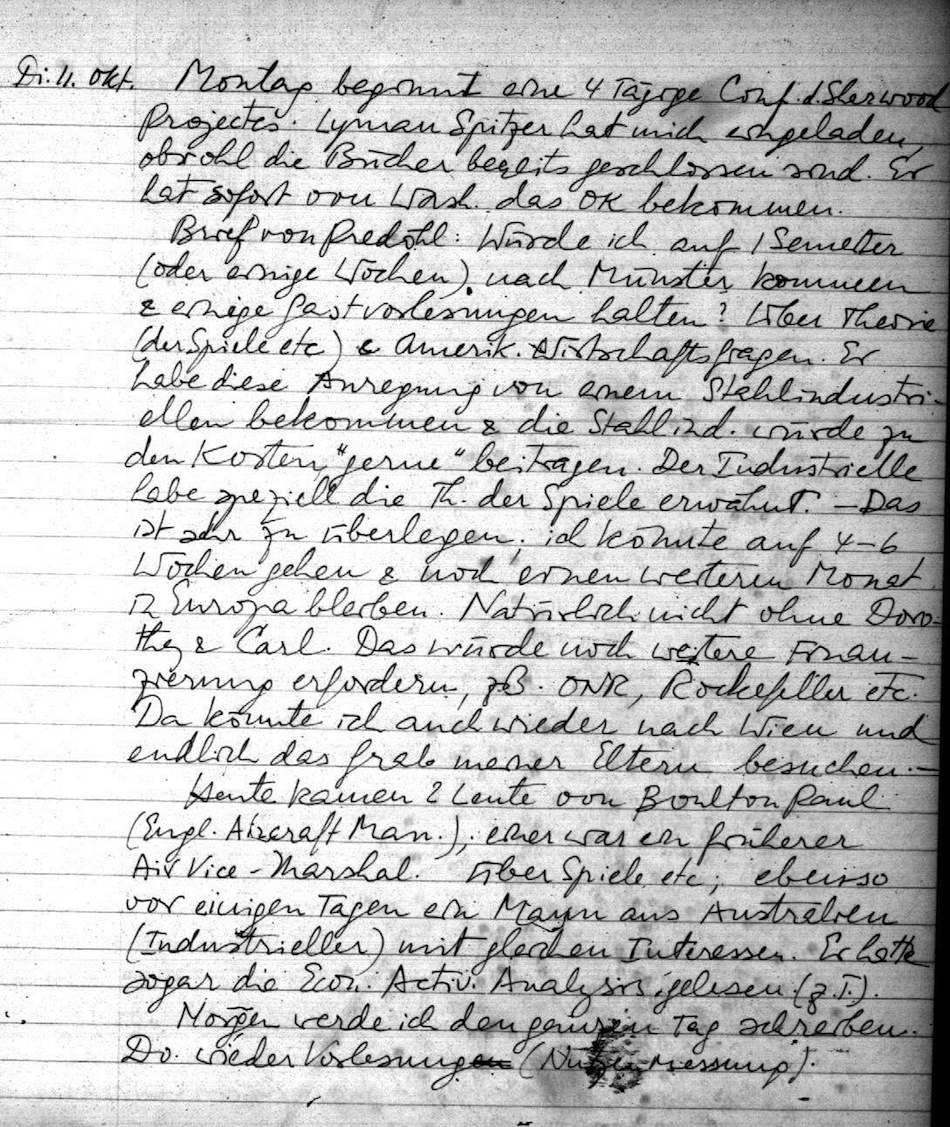 Di. 11. Okt. Montag beginnt eine 4 Tägige Conf. d. Sherwood
Projectes. Lyman Spitzer hat mich eingeladen,
obwohl die Bücher bereits geschlossen sind. Er
hat sofort von Wash. das OK bekommen.
Brief von Predöhl: Würde ich auf 1 Semester
(oder einige Wochen) nach Münster kommen
& einige Gastvorlesungen halten? Über Theorie
(der Spiele etc) & Amerik. Wirtschaftsfragen. Er
habe diese Anregung von einem Stahlindustri-
ellen bekommen & die Stahlind. würde zu
den Kosten "gerne" beitragen. Der Industrielle
habe speziell die Th. der Spiele erwähnt. – Das
ist sehr zu überlegen; ich könnte auf 4–6
Wochen gehen & noch einen weiteren Monat
in Europa bleiben. Natürlich nicht ohne Doro-
thy & Carl. Das würde noch weitere Finan-
zierung erfordern, zB. ONR, Rockefeller etc.
Da könnte ich auch wieder nach Wien und
endlich das Grab meiner Eltern besuchen. –
Heute kamen 2 Leute von Boulton Paul
(Engl. Aircraft Man.), einer war ein früherer
Air Vice-Marshal. Über Spiele etc; ebenso
vor einigen Tagen ein Mann aus Australien
(Industrieller) mit gleichen Interessen. Er hatte
sogar die Econ. Activ. Analysis gelesen (z.T.).
Morgen werde ich den ganzen Tag schreiben.
Do. wieder Vorlesung (Nutzenmessung).